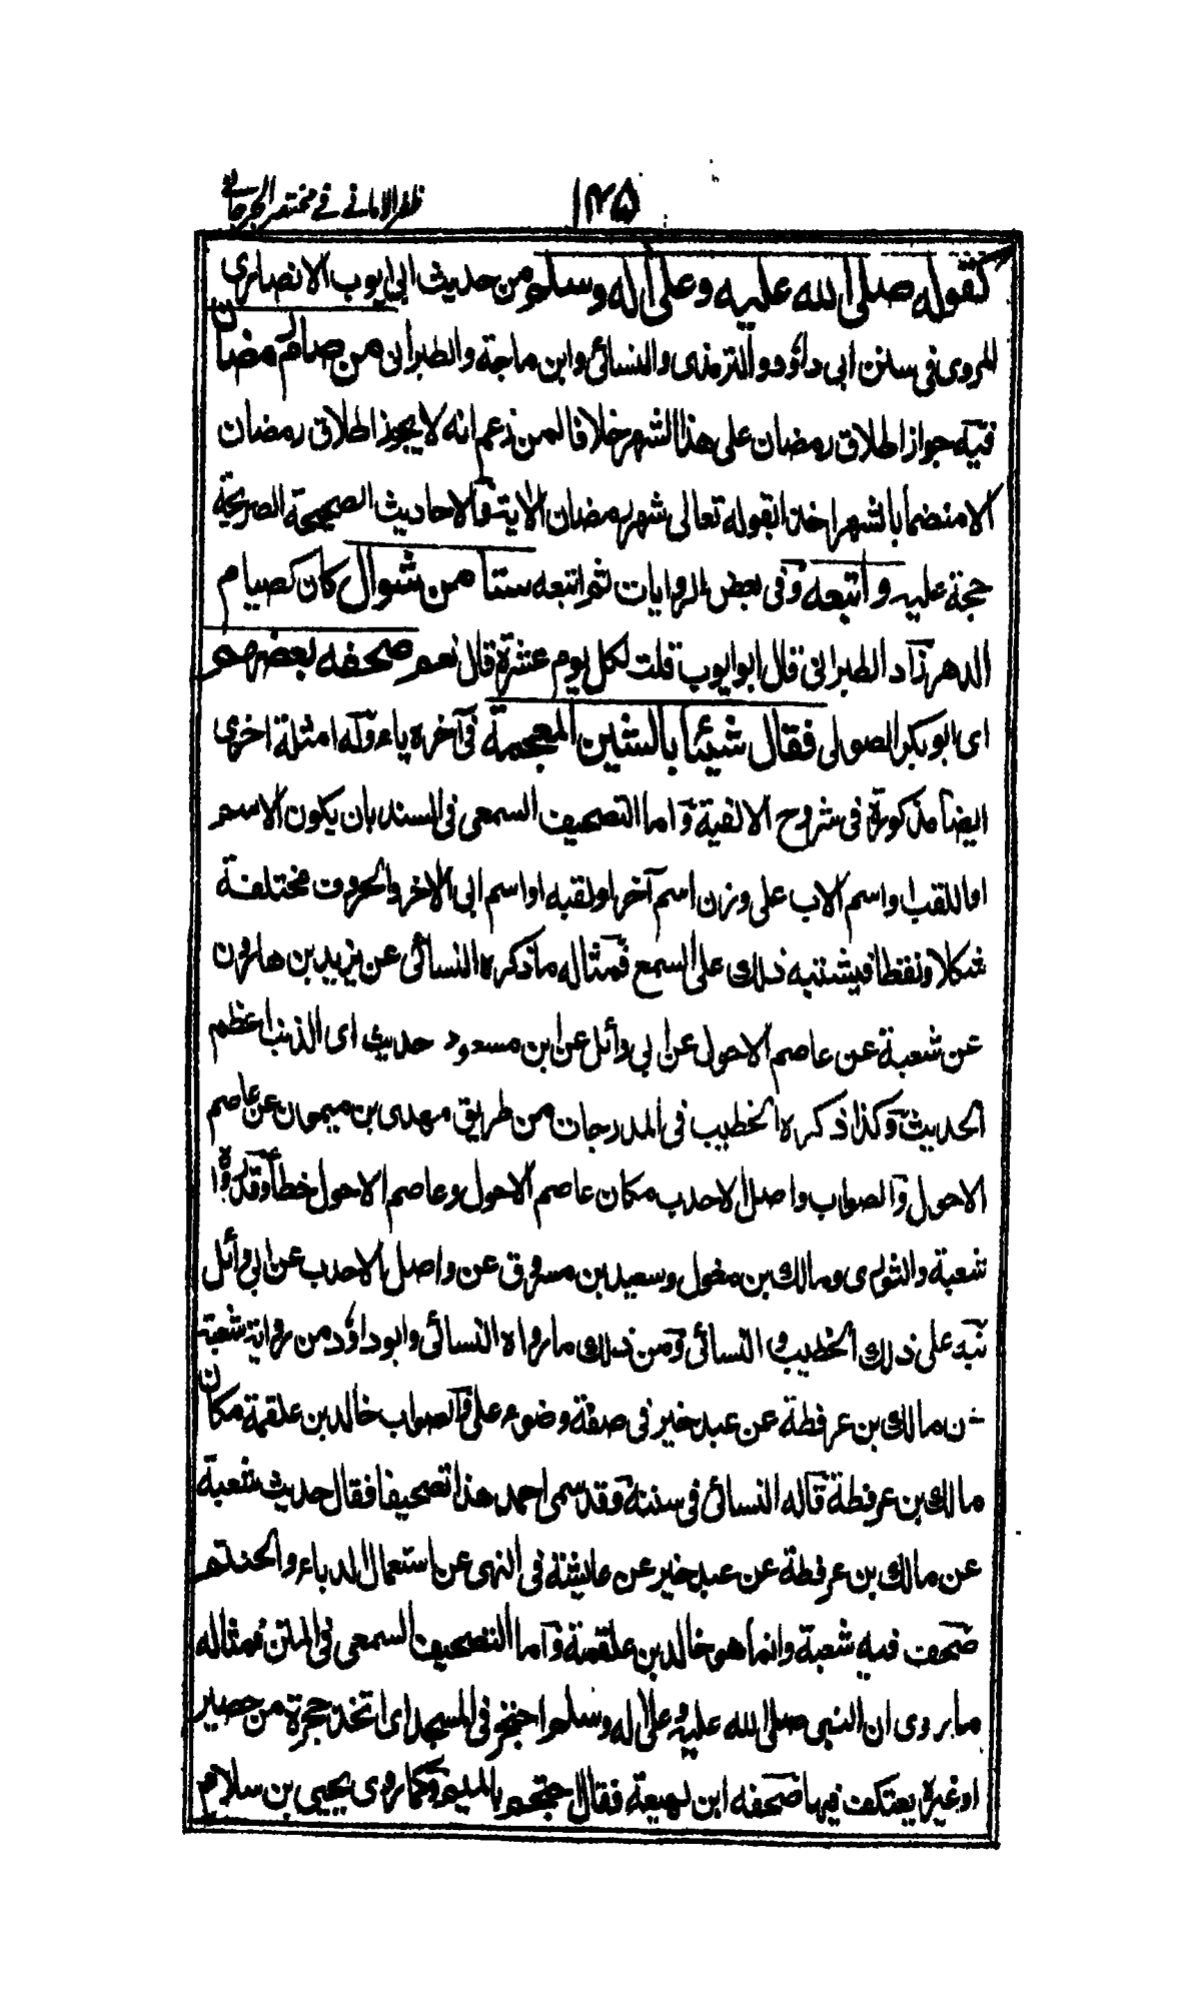 ظفر الامانی فی مختصر الجرجانی ١٤٥
كقوله صلى الله عليه وعلى آله وسلم من حديث ابى ايوب الانصارى
المروى فى سنن ابى داؤد والترمذى والنسائى وابن ماجة والطبرانى من صام رمضان
فيه جواز اطلاق رمضان على هذا الشهر خلافا لمن زعم انه لا يجوز اطلاق رمضان
الا منضما بالشهر اخذا بقوله تعالى شهر رمضان الآية والاحاديث الصحيحة الصريحة
حجة عليه واتبعه وفى بعض الروايات ثم اتبعه ستا من شوال كان كصيام
الدهر زاد الطبرانى قال ابو ايوب قلت لكل يوم عشرة قال نعم صحفه بعضهم
اى ابو بكر الصولى فقال شيئا بالشين المعجمة فى آخره ياء وله امثلة اخرى
ايضا مذكورة فى شروح الالفية واما التصحيف السمعى فى السند بان يكون الاسم
او اللقب او اسم الاب على وزن اسم آخر او لقبه او اسم ابى الاخر والحروف مختلفة
شكلا ونقطا فيشتبه ذلك على السمع فمثاله ما ذكره النسائى عن يزيد بن هارون
عن شعبة عن عاصم الاحول عن ابى وائل عن ابن مسعود حديث اى الذنب اعظم
الحديث وكذا ذكره الخطيب فى المدرجات من طريق مهدى بن ميمون عن عاصم
الاحول والصواب واصل الاحدب مكان عاصم الاحول وعاصم الاحول خطأ وقد رواه
شعبة والثورى ومالك بن مغول وسعيد بن مسروق عن واصل الاحدب عن ابى وائل
نبه على ذلك الخطيب والنسائى ومن ذلك ما رواه النسائى وابو داؤد من رواية شعبة
عن مالك بن عرفطة عن عبد خير فى صفة وضوء على والصواب خالد بن علقمة مكان
مالك بن عرفطة قاله النسائى فى سننه وقد سمى احمد هذا تصحيفا فقال حديث شعبة
عن مالك بن عرفطة عن عبد خير عن عايشة فى النهى عن استعمال الدباء والحنتم
صحف فيه شعبة وانما هو خالد بن علقمة واما التصحيف السمعى فى المتن فمثاله
ما روى ان النبى صلى الله عليه وعلى اله وسلم احتجر فى المسجد اى اتخذ حجرة من حصير
او غيره يعتكف فيها صحفه ابن لهيعة فقال احتجم بالميم وكما روى يحيى بن سلام